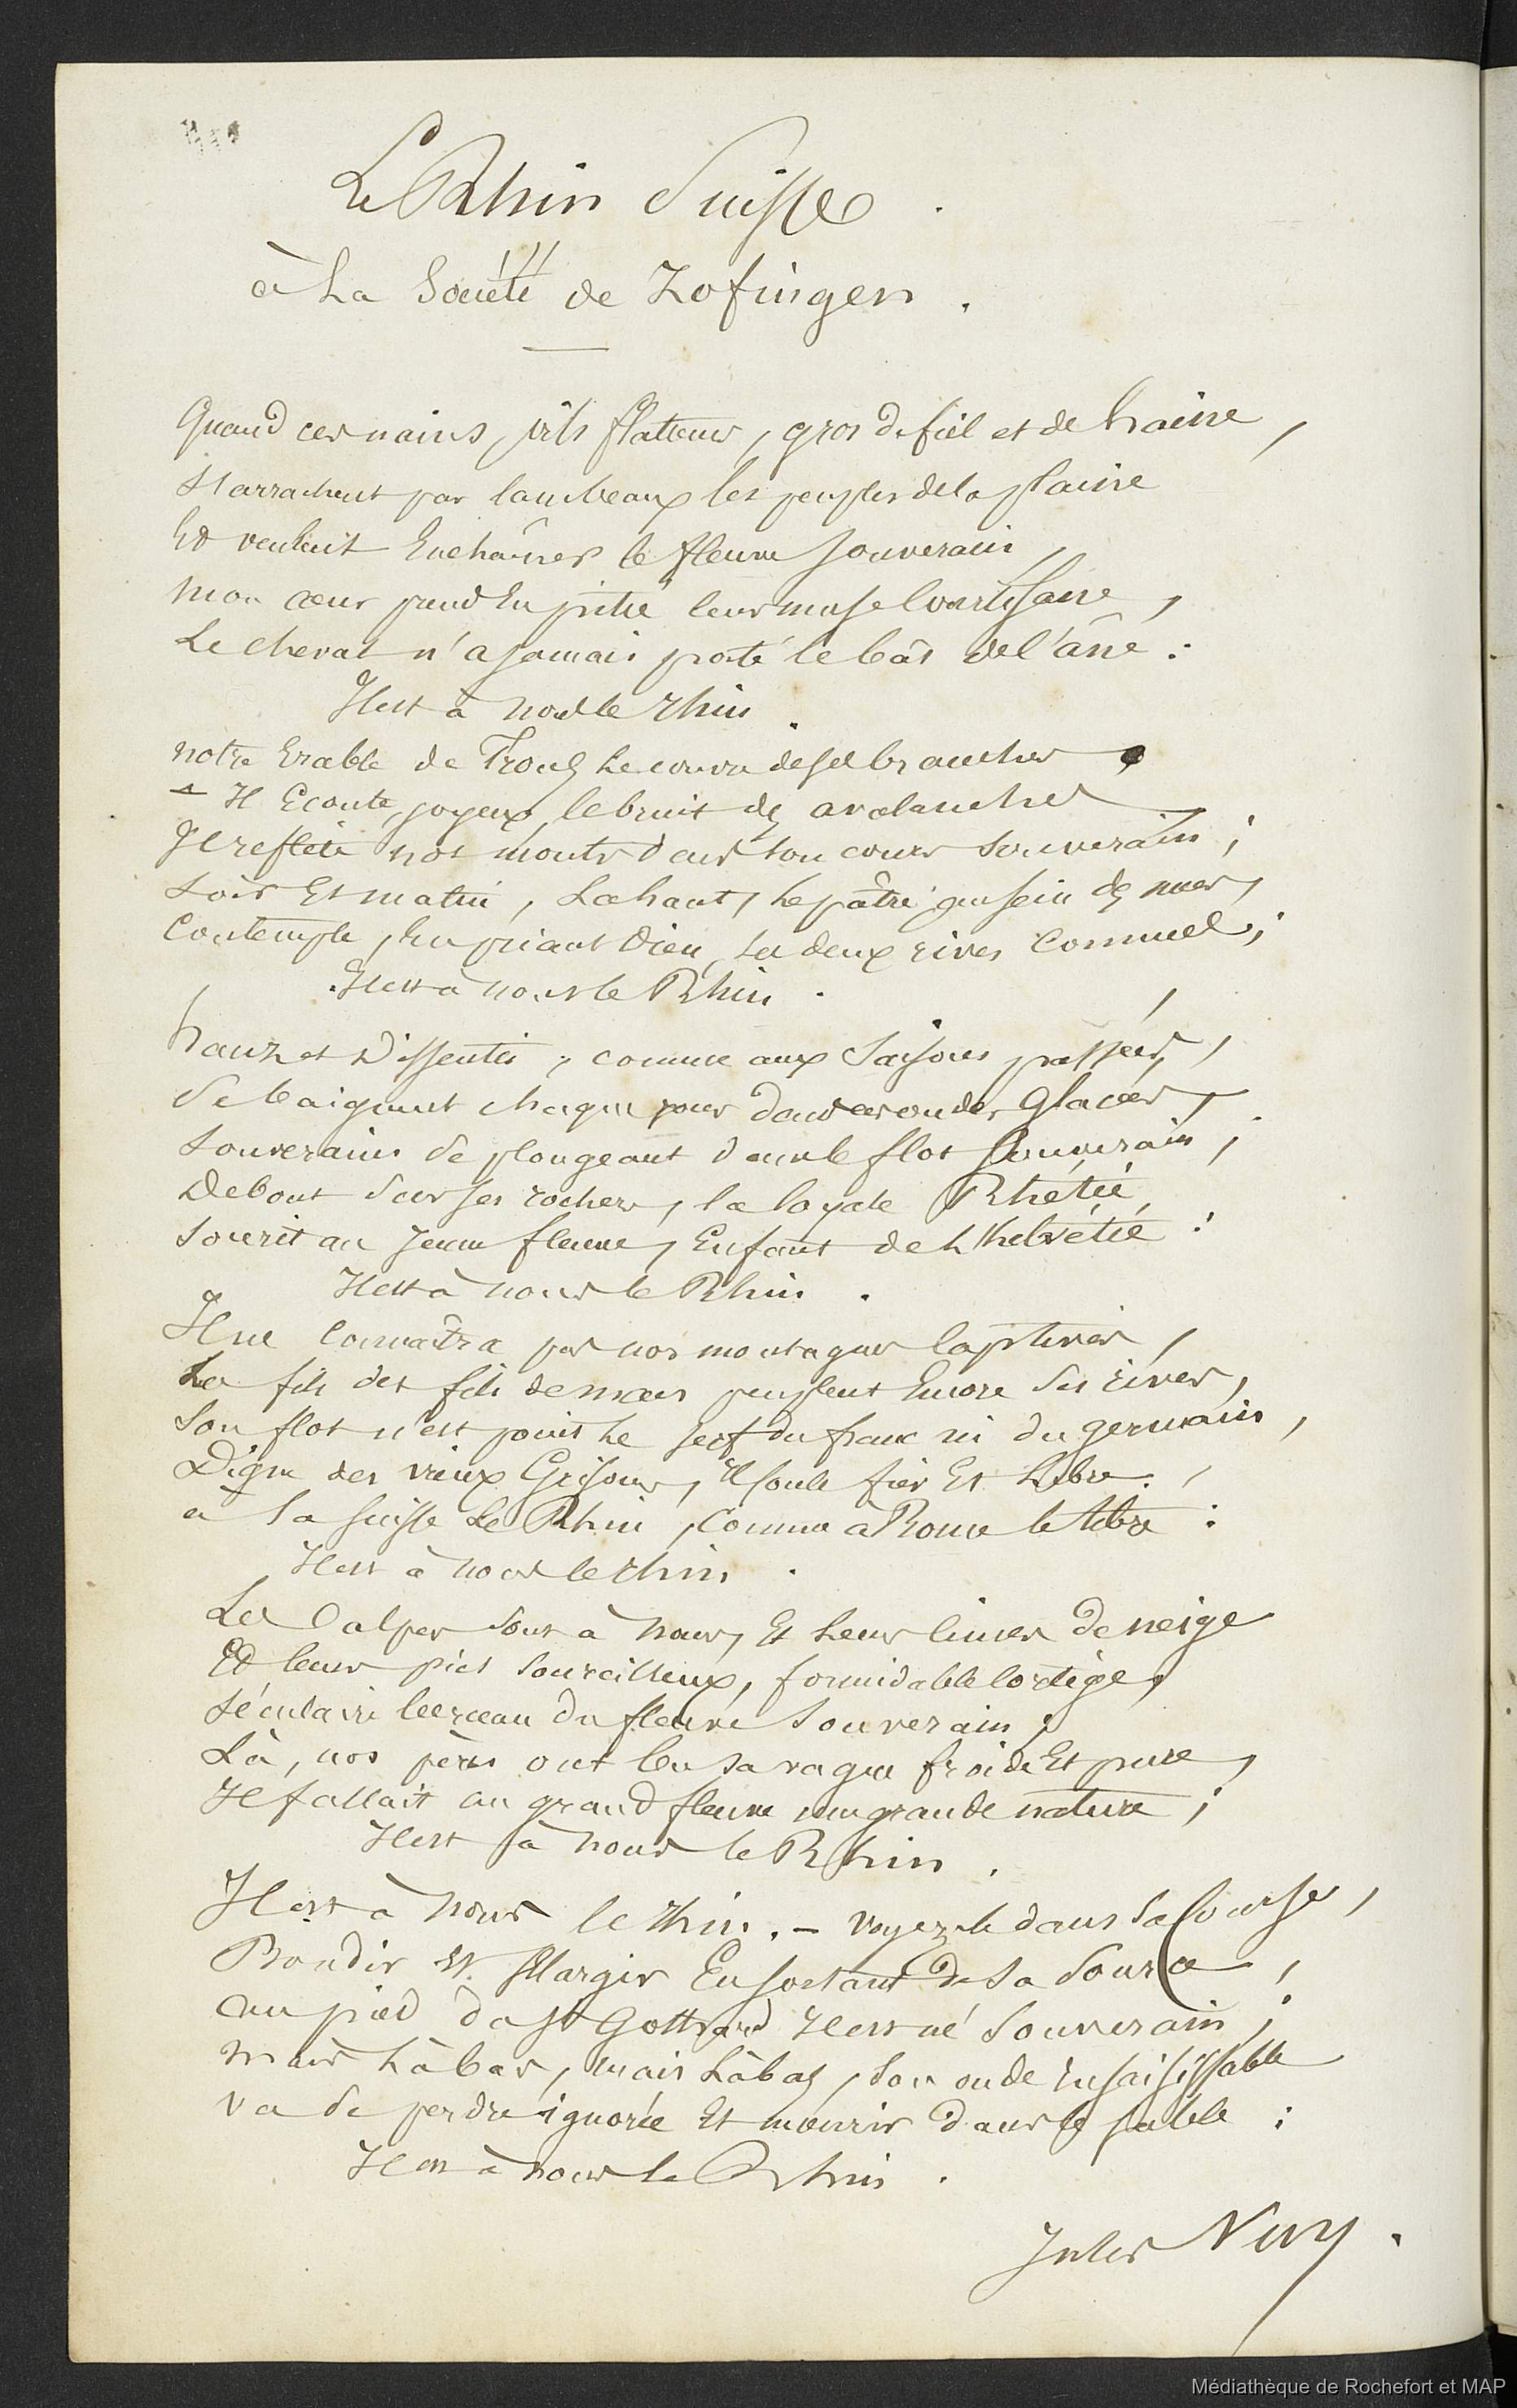 Le Rhin Suisse.
à la Société de Zofingen.
Quand ces nains, vils flatteurs, gros de fiel et de haine,
S'arrachent par lambeaux les peuples de la plaine
Et veulent Enchaîner le fleuve souverain,
mon cœur prend En pitié leur muse Courtisane,
Le cheval n'a jamais porté le bât de l'âne :
Il est à nous le rhin.
notre Erable de Trons le couvre de ses branches,
Il Ecoute, joyeux, le bruit des avalanches
Il reflète nos monts dans son cours souverain ;
Soir Et matin, Là haut, le pâtre, au sein des nues,
Contemple, En priant Dieu, ses deux rives connues ;
Il est à nous le Rhin.
hanz et Dissentis, comme aux Saisons passées,
Se baignent chaque jour dans ces ondes Glacées,
Souverains se plongeant dans le flot souverain ;
Debout sur ses rochers, la loyale Rhétie,
Sourit au jeune fleuve, Enfant de L'helvétie :
Il est à nous le Rhin.
Il ne connaîtra pas nos montagnes Captives,
Les fils des fils de mars peuplent Encore ses rives,
Son flot n'est point le serf du franc ni du germain,
Digne des vieux Grisons, Il coule fier Et Libre,
à la suisse Le Rhin, Comme à Rome le tibre :
Il est à nous le rhin.
Les alpes sont à nous, Et Leurs cimes de neige
Et leurs pics sourcilleux, formidable Cortège,
Séculaire berceau du fleuve souverain ;
Là, nos pères ont bu sa vague froide Et pure,
Il fallait au grand fleuve une grande nature ;
Il est à nous le Rhin.
Il est à nous le rhin. — Voyez-le dans sa Course,
Bondir Et s'Elargir En sortant de sa source,
au pied du St Gotthard Il est né souverain ;
mais Là bas, mais Là bas, son onde Insaisissable
va se perdre ignorée Et mourir dans le sable :
Il est à nous le Rhin.
Jules Vuy.
Médiathèque de Rochefort et MAP